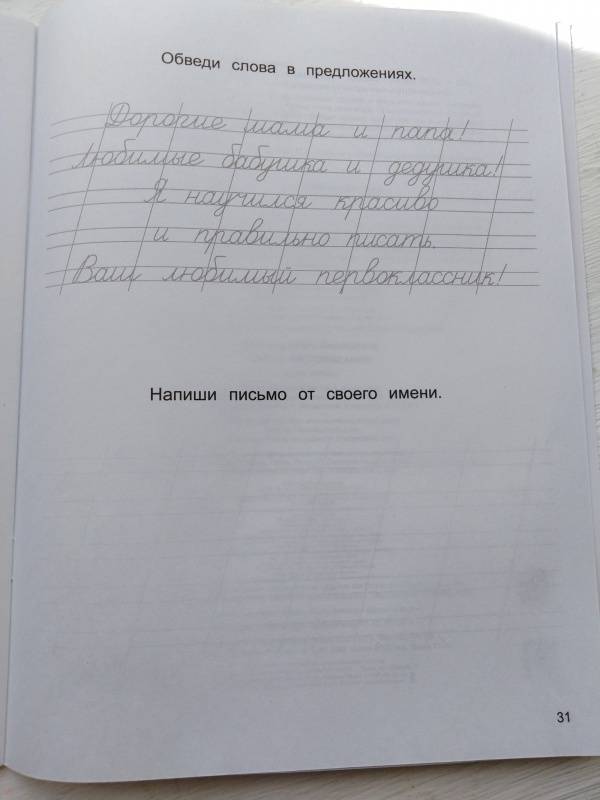 Обведи слова в предложениях.
Дорогие мама и папа!
Любимые бабушка и дедушка!
Я научился красиво
и правильно писать.
Ваш любимый первоклассник!
Напиши письмо от своего имени.
31